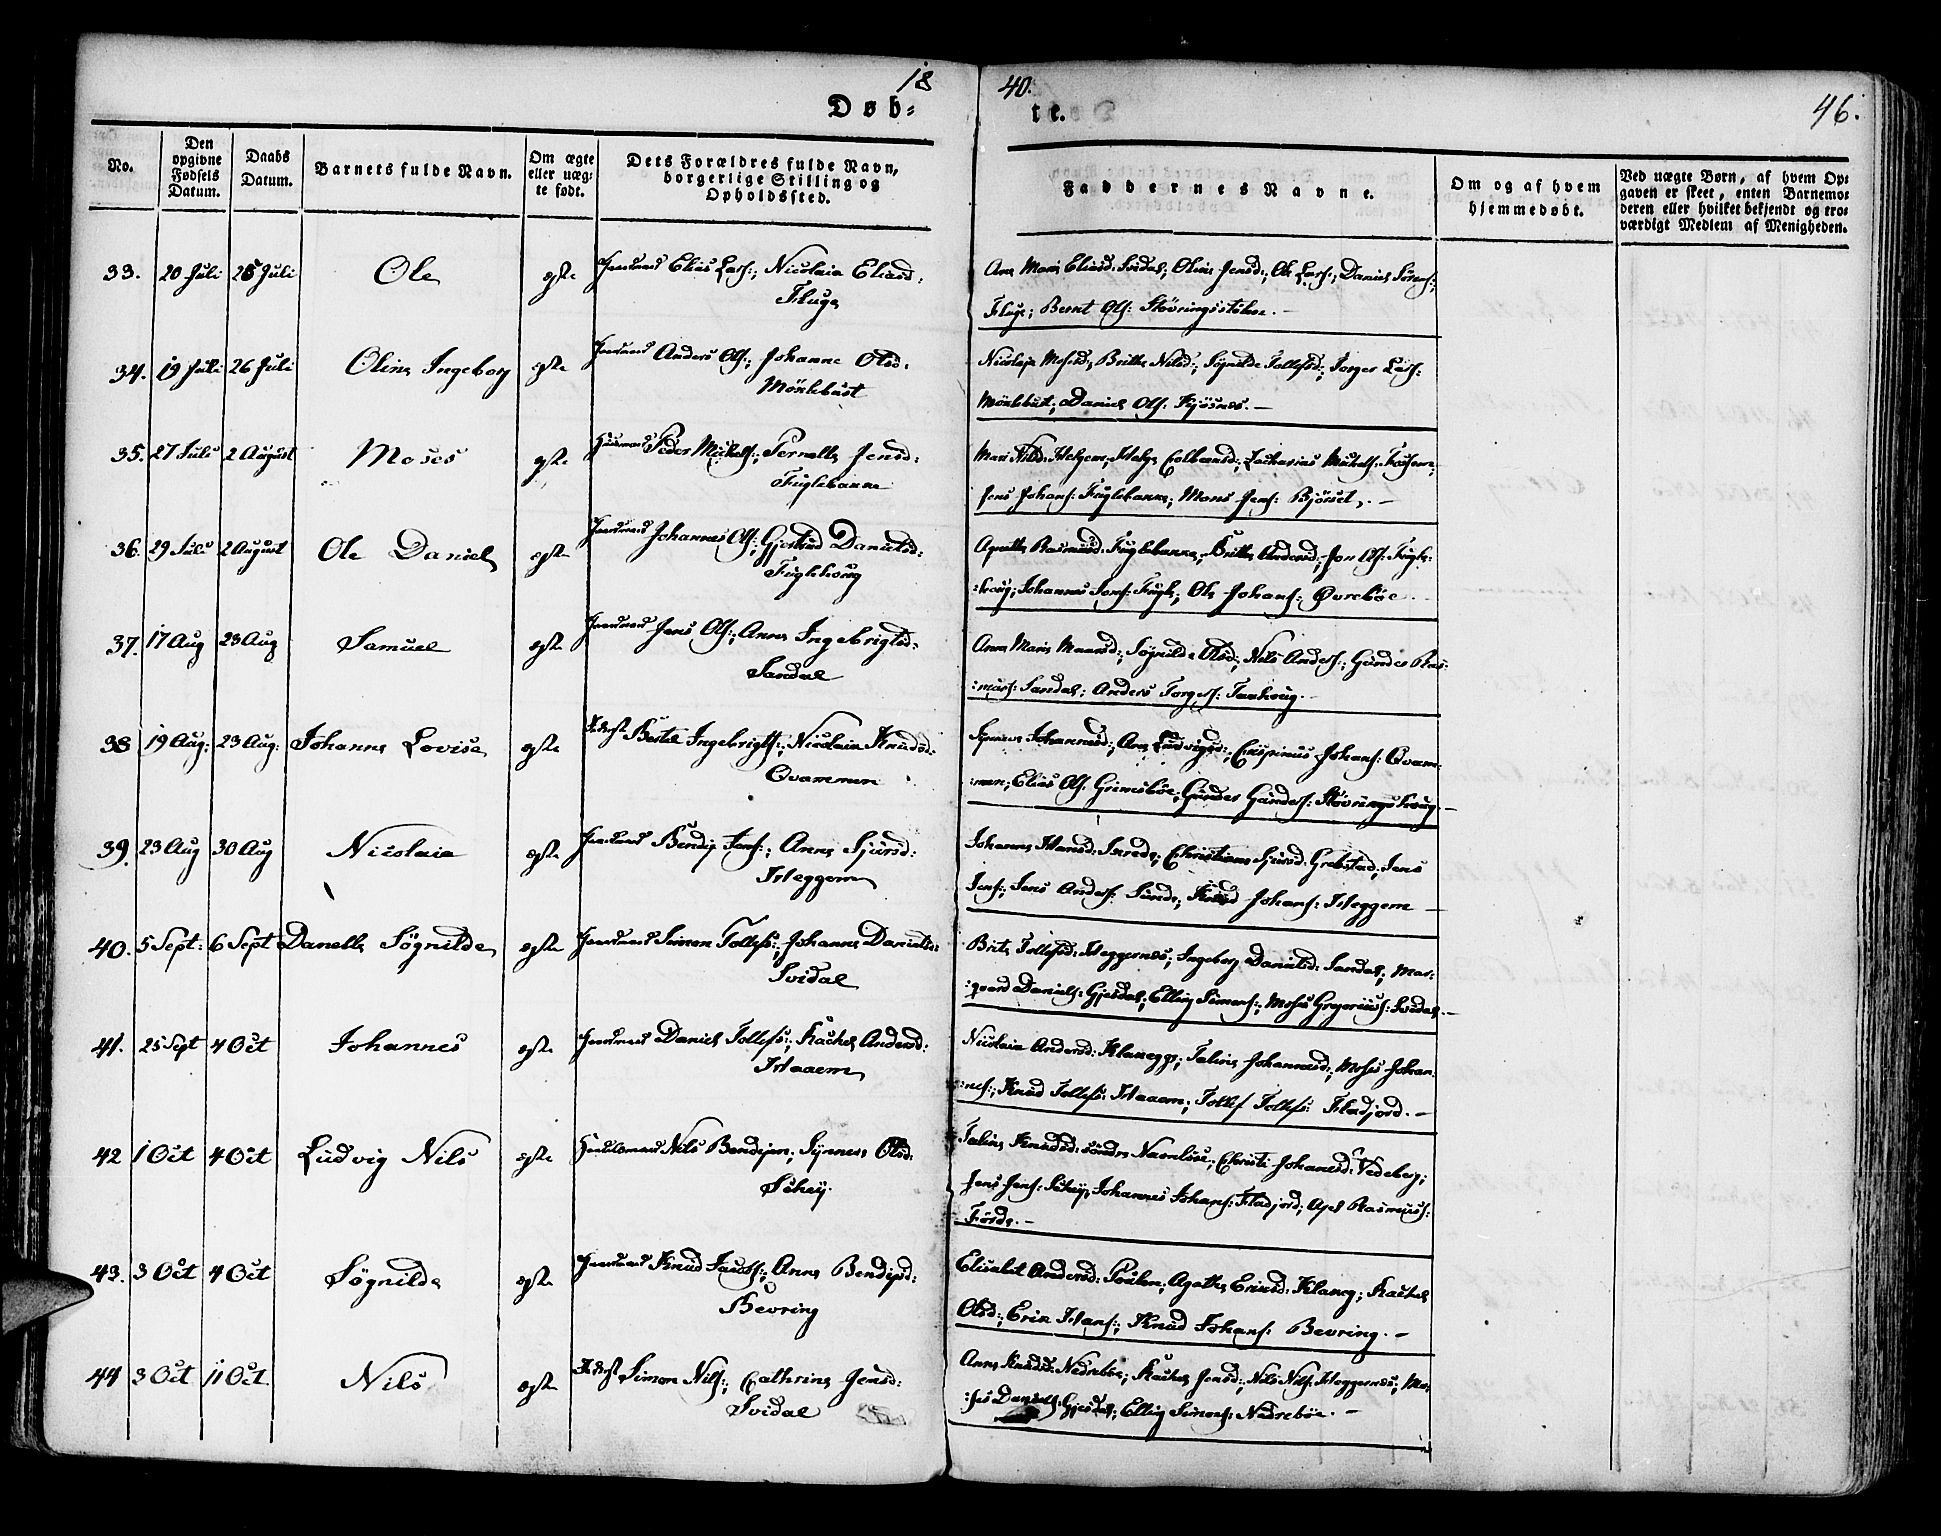 18
40.
46.
Døb-
te.
No.
Den opgivne Fødsels Datum.
Daabs Datum.
Barnets fulde Navn.
Om ægte eller uæg-te født.
Dets Forældres fulde Navn, borgerlige Stilling og Opholdssted.
Faddernes Navne.
Om og af hvem hjemmedøbt.
Ved uægte Børn, af hvem Op-gaven er skeet, enten Barnemo-deren eller hvilket bekjendt og tro-værdigt Medlem af Menigheden.
33. 20 Juli 26 Juli Ole egte Elias Lars:, Nicolaia Eliasd:
Fluge
Ane Marie Eliasd: Svidal; Oline Jensd:, Ole Lars:, Daniel Sørens:,
Fluge; Bernt Ols: Støvringsstølen. -
34. 19 Juli 26 Juli Oline Ingeborg egte Anders Ols:, Johanne Olsd:
Mörkebust
Nicolaia Mosesd:, Brithe Nilsd:, Sögnilde Tollefsd:, Torger Lars:
Mörkebust; Daniel Ols: Kjösnes. -
35. 27 Juli 2 August Moses egte Peder Michels:, Pernelle Jensd:
Füglebanne
Mari Nilsd: Helgem; Helge Colbeensd:, Zacharias Michels:
Jens Johans: Füglebanne; Mons Jens: Bjørset. -
36. 29 Juli 2 August Ole Daniel egte Johannes Ols:, Gjertrud Danielsd:
Fuglehoug
Agnethe Rasmusd: Füglebanne, Brithe Andersd:, Jon Ols: Fugle-
-houg; Johannes Jens: Fugle; Ole Johans: Øvrebøe.
37. 17 Aug 23 Aug Samuel egte Jens Ols:, Anne Ingebrigtsd:
Sandal
Anne Marie Monsd:, Sögnilde Olsd:, Nils Anders:, Günder Ras-
-mus: Sandal; Anders Torgers:
38 19 Aug: 23 Aug: Johanne Lovise egte Bertel Ingebrigts:, Nicolaia Knudsd:
Qvammen
Johannesd:, Ane Ludvigsd:, Crispinus Johans: Qvam-
-men; Elias Ols: Grimsbøe, Günder Günders:
39. 23 Aug 30 Aug Nicolaia egte Bendix Jens:, Anne Sjursd:
Heggem
Johanne Hansd: Sunde; Christiane Sjursd: Grebstad; Jens
Jens:, Jens Anders: Sünde; Knud Johans: Heggem -
40. 5 Sept: 6 Sept Danelle Sögnilde egte Simon Tollefs:, Johanne Danielsd:
Svidal
Brite Tollefsd: Heggernes; Ingeborg Danielsd: Sandal; Mar-
-qvard Daniels: Gjesdal; Elling Simons:, Moses Gregorius: Svidal. -
41. 25 Sept 4 Oct Johannes egte Daniel Tollefs:, Rachel Andersd:
Haaem
Nicolaia Andersd: Klauegg; Taline Johannesd:, Moses Johan-
-nes:, Knud Tollefs: Haaem; Tollef Tollefs: Fladjord. -
42 1 Oct 4 Oct Ludvig Nils egte Nils Bendixen; Synneve Olsd:
Schey.
Taline Knudsd: söndre Nave; Christi Johanesd: Vedeberg;
Jens Jens: Schey; Johannes Johans: Fladjord; Ape Rasmus:
Førde. -
43. 3 Oct 4 Oct Sögnilde egte Knud Jacobs:, Anne Bendixd:
Bevring
Elisabet Andersd: Agathe Ericsd: Klaueg; Rachel
Olsd:, Erik Hans:, Knud Johans: Bevring. -
44 3 Oct 11 Oct Nils egte Simon Nils:, Cathrine Jensd:
Svidal
Anne Knudsd: Nedrebøe; Rachel Jensd:, Nils Nils: Heggernes; Mo-
-ses Daniels: Gjesdal; Elling Simons: Nedrebøe. -